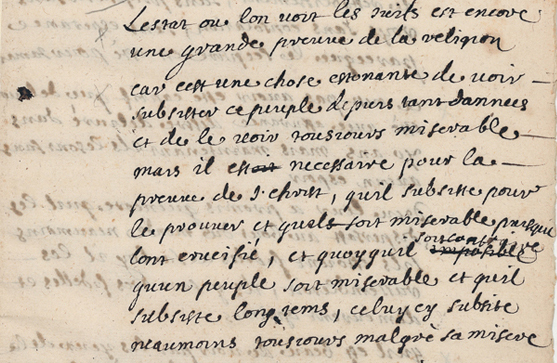 Lestat ou lon voit les juifs est encore
une grande preuve de la religion
car cest une chose estonante de voir
subsister ce peuple depuis tant dannees
et de le voir tousiours miserable
mais il est necessaire pour la
preuve de J christ, quil subsiste pour
le prouver et quils soit miserable puisqu
lont crucifié, et quoyquil soit contraire
quun peuple soit miserable et quil
subsiste long tems, celuy cy subsite
neaumoins tousiours malgré sa misere